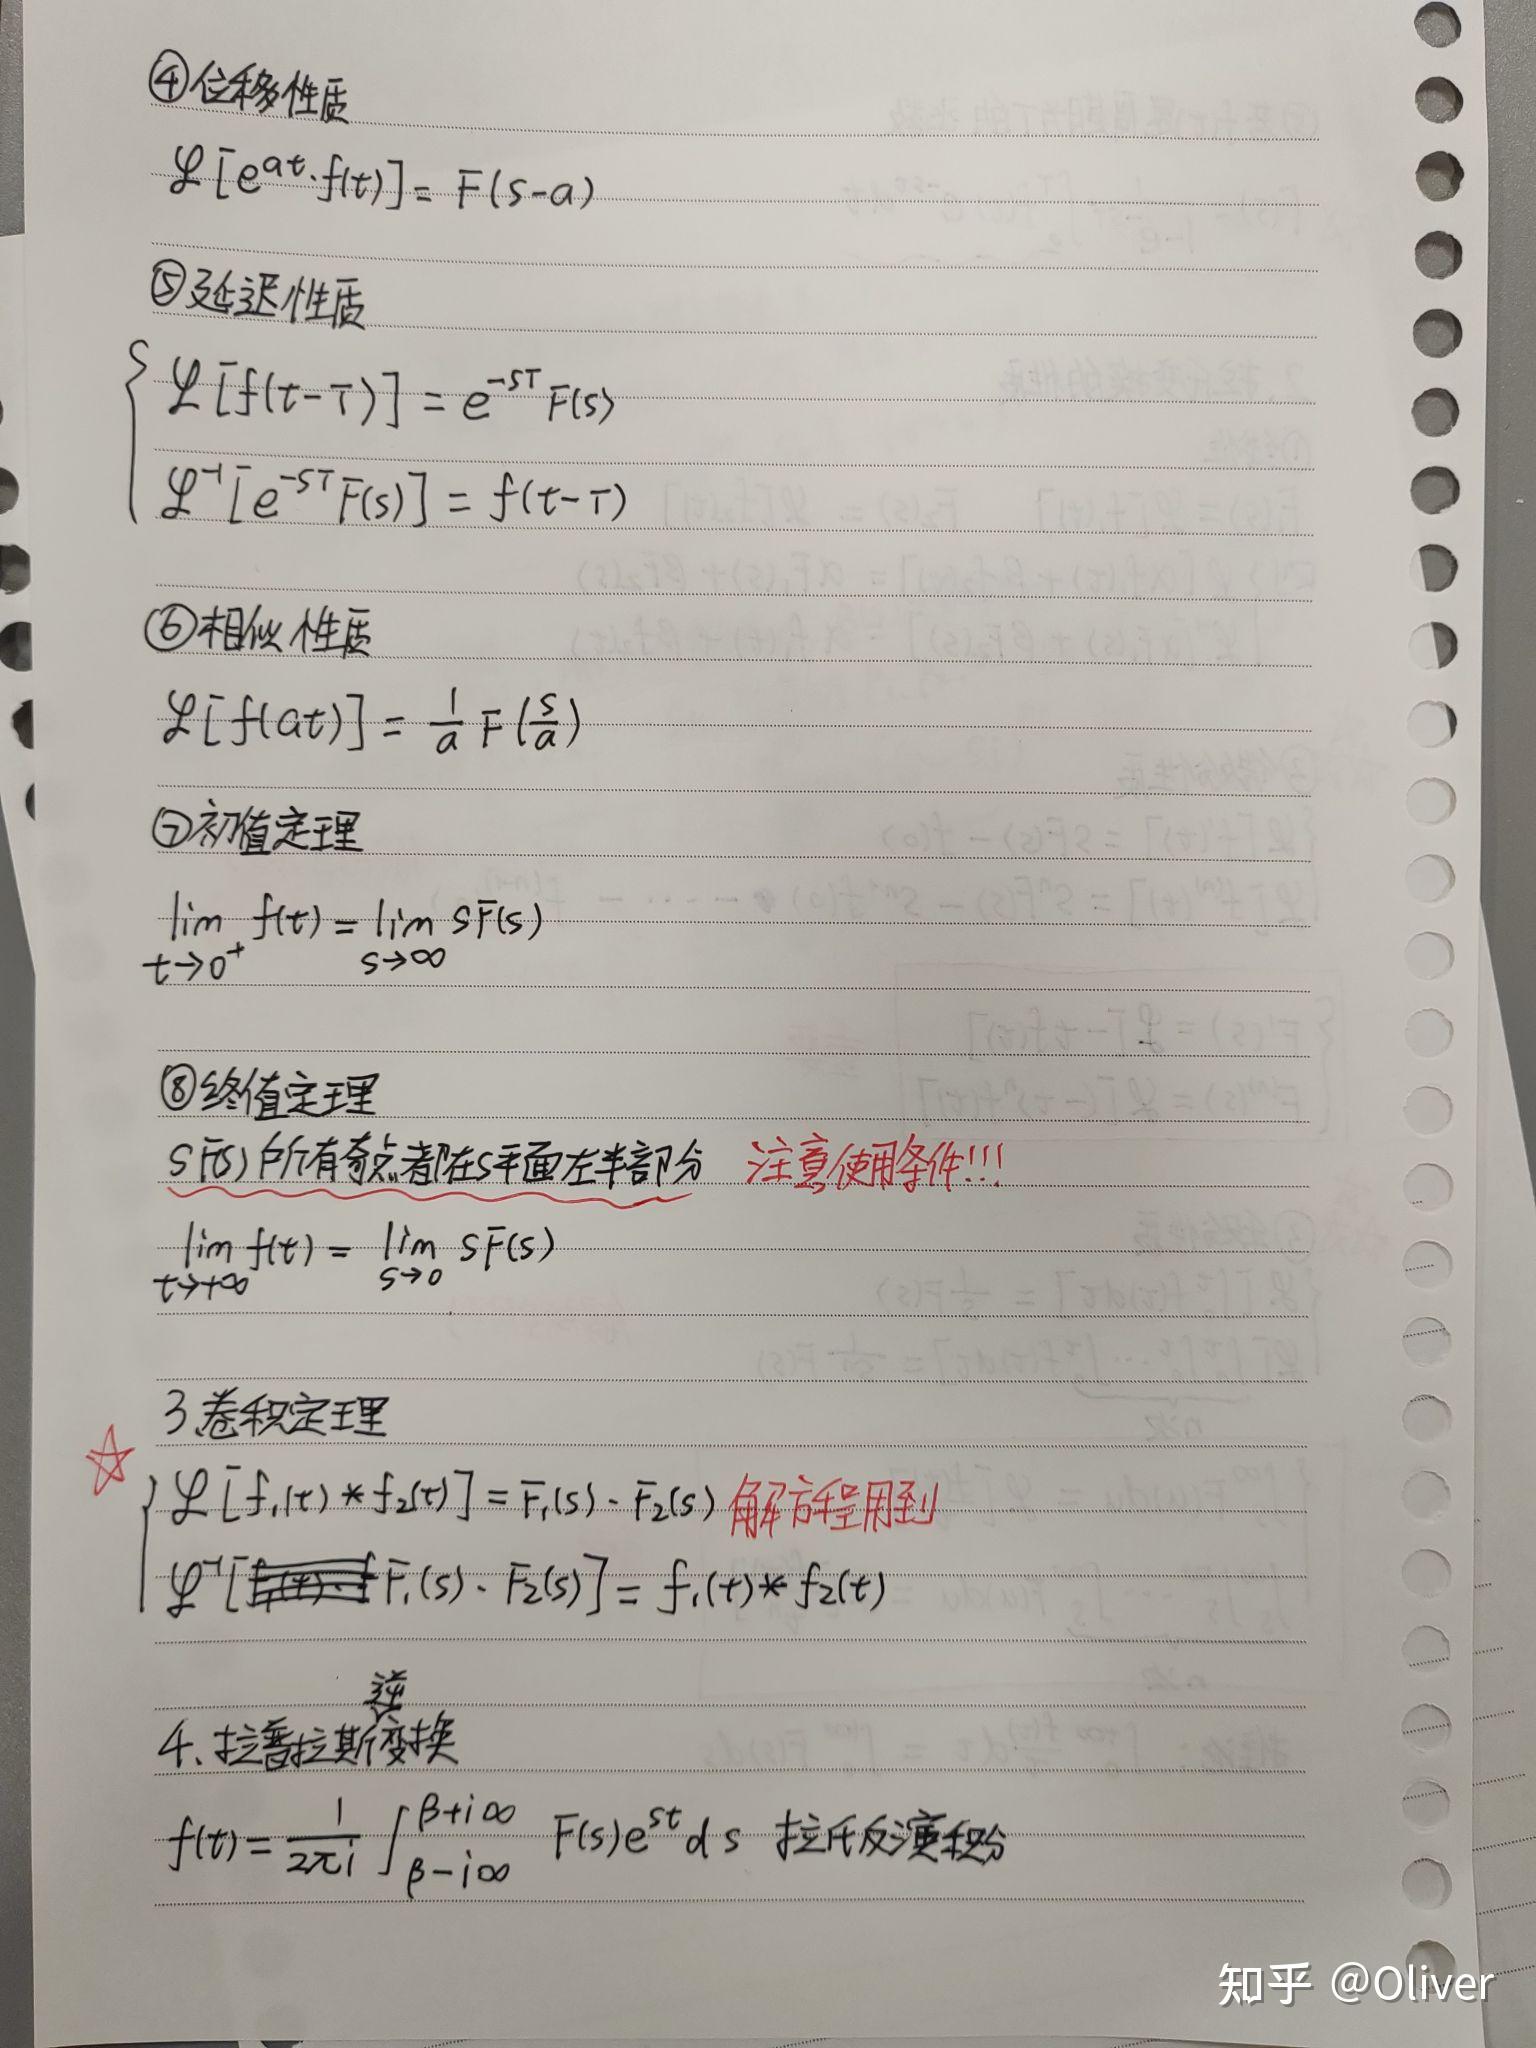 ④位移性质
ℒ[e^{at}·f(t)] = F(s-a)
⑤延迟性质
ℒ[f(t-T)] = e^{-sT} F(s)
ℒ^{-1}[e^{-sT} F(s)] = f(t-T)
⑥相似性质
ℒ[f(at)] = \frac{1}{a} F(\frac{s}{a})
⑦初值定理
\lim_{t→0^+} f(t) = \lim_{s→∞} sF(s)
⑧终值定理
sF(s)所有奇点都在s平面左半部分 注意使用条件!!!
\lim_{t→+∞} f(t) = \lim_{s→0} sF(s)
3.卷积定理
ℒ[f₁(t) * f₂(t)] = F₁(s)·F₂(s) 解方程用到
ℒ^{-1}[F₁(s)·F₂(s)] = f₁(t) * f₂(t)
4.拉普拉斯逆变换
f(t) = \frac{1}{2πi} ∫_{β-i∞}^{β+i∞} F(s)e^{st} ds 拉氏反演积分
知乎 @Oliver